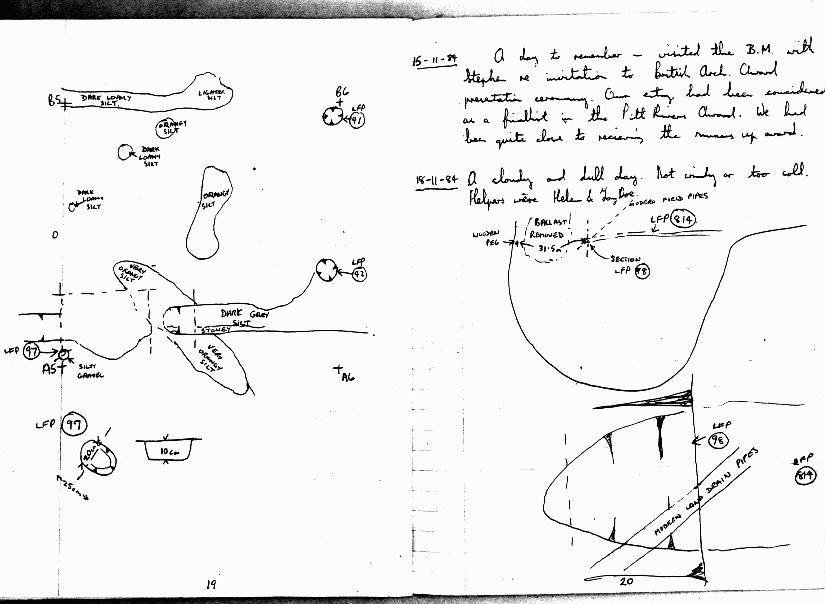 B5
DARK LOAMY
SILT
LIGHTER
SILT
B6
LFP
91
ORANGY
SILT
DARK
LOAMY
SILT
DARK
LOAMY
SILT
ORANGY
SILT
0
VERY
ORANGY
SILT
LFP
92
DARK GREY
SILT
STONEY
VERY
ORANGY
SILT
LFP 97
A5
SILTY
GRAVEL
A6
LFP 97
20cm
25cm
10cm
19
15-11-84 A day to remember – visited the B.M. with
Stephen re invitation to British Arch. Award
presentation ceremony. Our entry had been considered
as a finalist in the Pitt Rivers Award. We had
been quite close to recieving the runners up award.
18-11-84 A cloudy and dull day. Not windy or too cold.
Helpers were Helen &
MODERN FIELD PIPES
BALLAST
REMOVED
31.5m
LFP 814
WOODEN
PEG
SECTION
LFP 98
LFP
98
LFP
814
MODERN LAND DRAIN PIPES
20